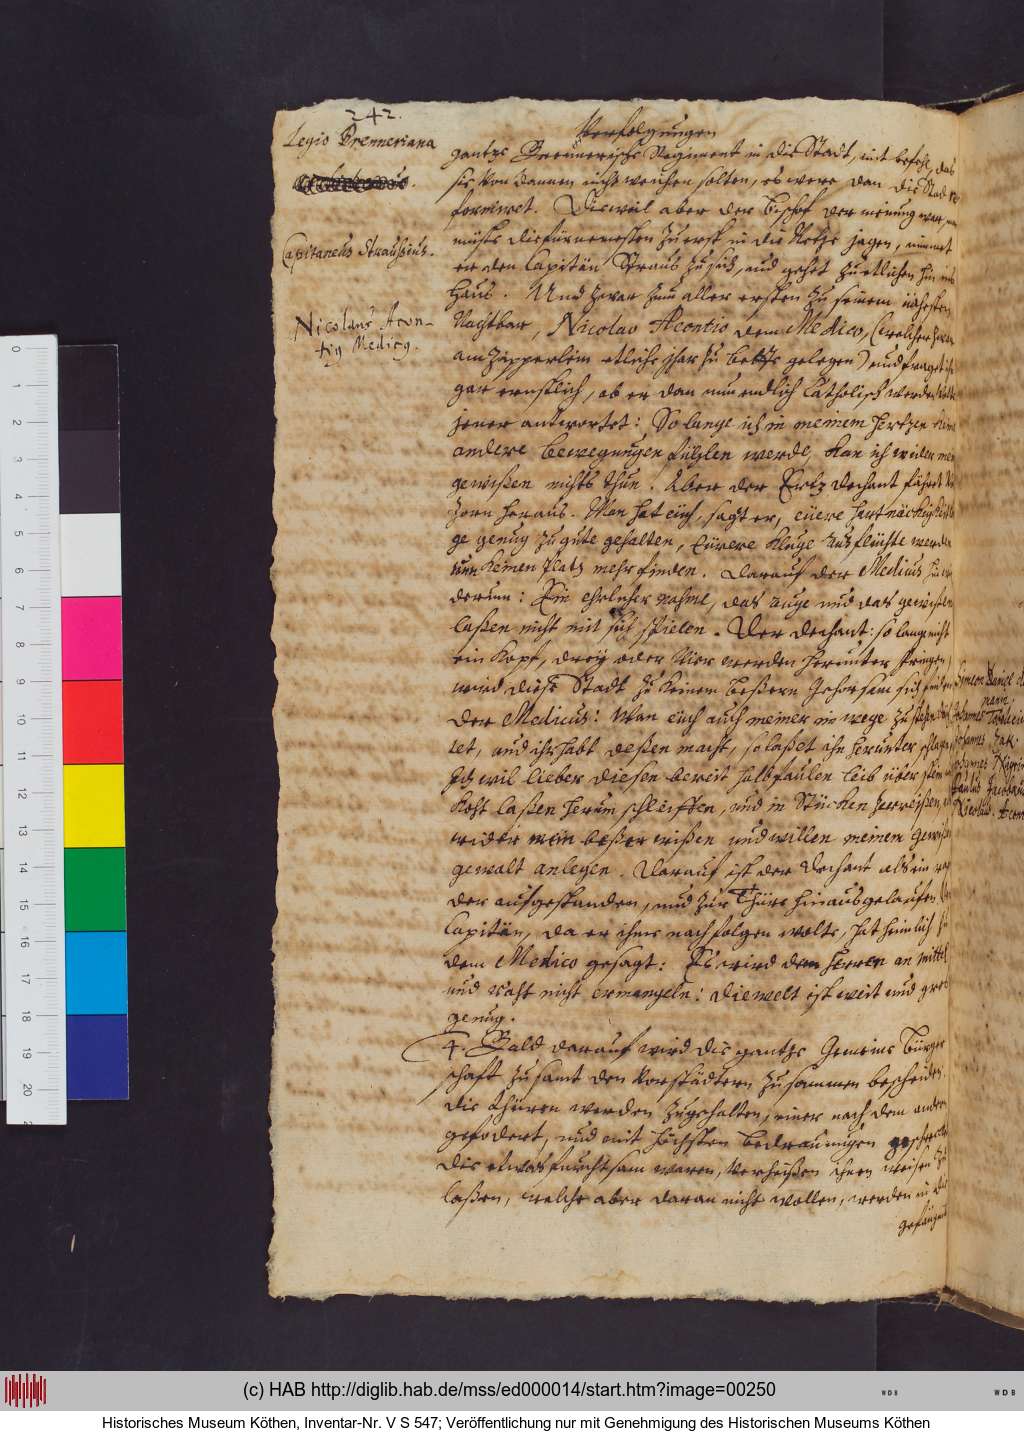 242.
Verfolgungen
Legio Breuneriana
Capitaneus Straussius.
Nicolaus Acon-
tig Medicg.
gantze Breunerische Regiment in die Stadt, mit befehl, das
sie von dannen nicht weichen solten, es were dan die Stad re-
formiret. Dieweil aber der Bischof der meinung war,
müste die fürnemesten zu erst in die Netze jagen, nimmet
er den Capitän Straus zu sich, und gehet zu etlichen hin ins
Haus. Und zwar zum aller ersten zu seinem nähesten
Nachtbar, Nicolao Acontio dem Medico, (welcher zwar
am Zipperlein etliche jhar zu bette gelegen) und fraget ihn
gar ernstlich, ob er dan nun endlich Catholisch werden wolte
jener antwortet: So lange ich in meinem Hertzen keine
andere bewegungen fühlen werde, kan ich wider mein
gewißen nichts thun. Aber der Ertz dechant fähret
zorn heraus. Man hat euch, sagt er, euere hartnäckigkeit
ge genug zu gute gehalten, Eurere kluge ausflüchte werden
nun keinen Platz mehr finden. Darauf der Medicus hin wi-
derumb: Ein ehrlicher nahme, das auge und das gewißen
laßen nicht mit sich spielen. Der dechant: so lange nicht
ein Kopf, drey oder vier werden herunter springen,
wird diese Stadt zu keinem beßern Gehorsam sich finden
Der Medicus: Wan euch auch meiner im wege zu stehen
tet, und ihr habt deßen macht, so laßet ihn herunter schlagen
Ich wil lieber diesen bereit halb faulen leib über stein
koht laßen herum schleiffen, und in Stücken zerreißen,
wider mein beßer wißen und willen meinem gewißen
gewalt anlegen. Darauf ist der Dechant als ein
der aufgestanden, und zur Thüre hinausgelaufen,
Capitän, da er ihme nachfolgen wolte, hat heimlich zu
dem Medico gesagt: Es wird dem Herren an mittel
und raht nicht ermangeln: die welt ist weit und gros
genug.
4. Bald darauf wird die gantze Gemeine Bürger
schaft zu samt den Vorstädtern zusammen bescheiden.
die thüren werden zugehalten, einer nach dem andern
gefodert, und mit höchsten bedrauungen geschreckt
die etwas furchtsam waren, verheißen ihnen weisen zu
laßen, welche aber daran nicht wollen, werden in die
gefängnis
Simeon Daniel
Johannes
Johannes Jak.
Paulus Jacobäus
Nicolaus Acon
(c) HAB http://diglib.hab.de/mss/ed000014/start.htm?image=00250
WDB
WDB
Historisches Museum Köthen, Inventar-Nr. V S 547; Veröffentlichung nur mit Genehmigung des Historischen Museums Köthen